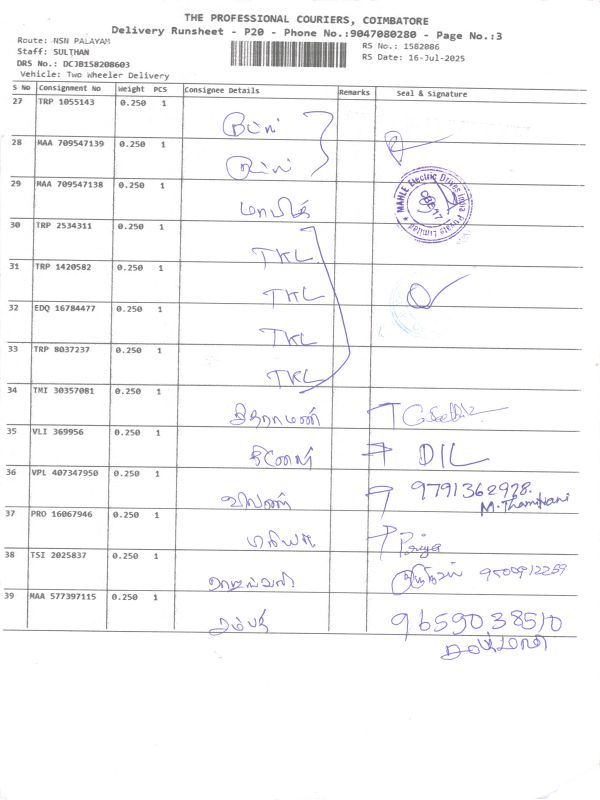 THE PROFESSIONAL COURIERS, COIMBATORE
Delivery Runsheet - P20 - Phone No.:9047080280 - Page No.:3
Route: NSN PALAYAM
RS No.: 1582086
Staff: SULTHAN
RS Date: 16-Jul-2025
DRS No.: DCJB158208603
Vehicle: Two Wheeler Delivery
S No Consignment No Weight PCS Consignee Details Remarks Seal & Signature
27 TRP 1055143 0.250 1
28 MAA 709547139 0.250 1
29 MAA 709547138 0.250 1
MAHLE Electric Drives India Private Limited
30 TRP 2534311 0.250 1 TKL
31 TRP 1420582 0.250 1 TKL
32 EDQ 16784477 0.250 1 TKL
33 TRP 8037237 0.250 1 TKL
34 TMI 30357081 0.250 1
35 VLI 369956 0.250 1 DIL
36 VPL 407347950 0.250 1 9791362978.
M. Thamilvani
37 PRO 16067946 0.250 1 Priya
38 TSI 2025837 0.250 1 9500912259
39 MAA 577397115 0.250 1 9659038510